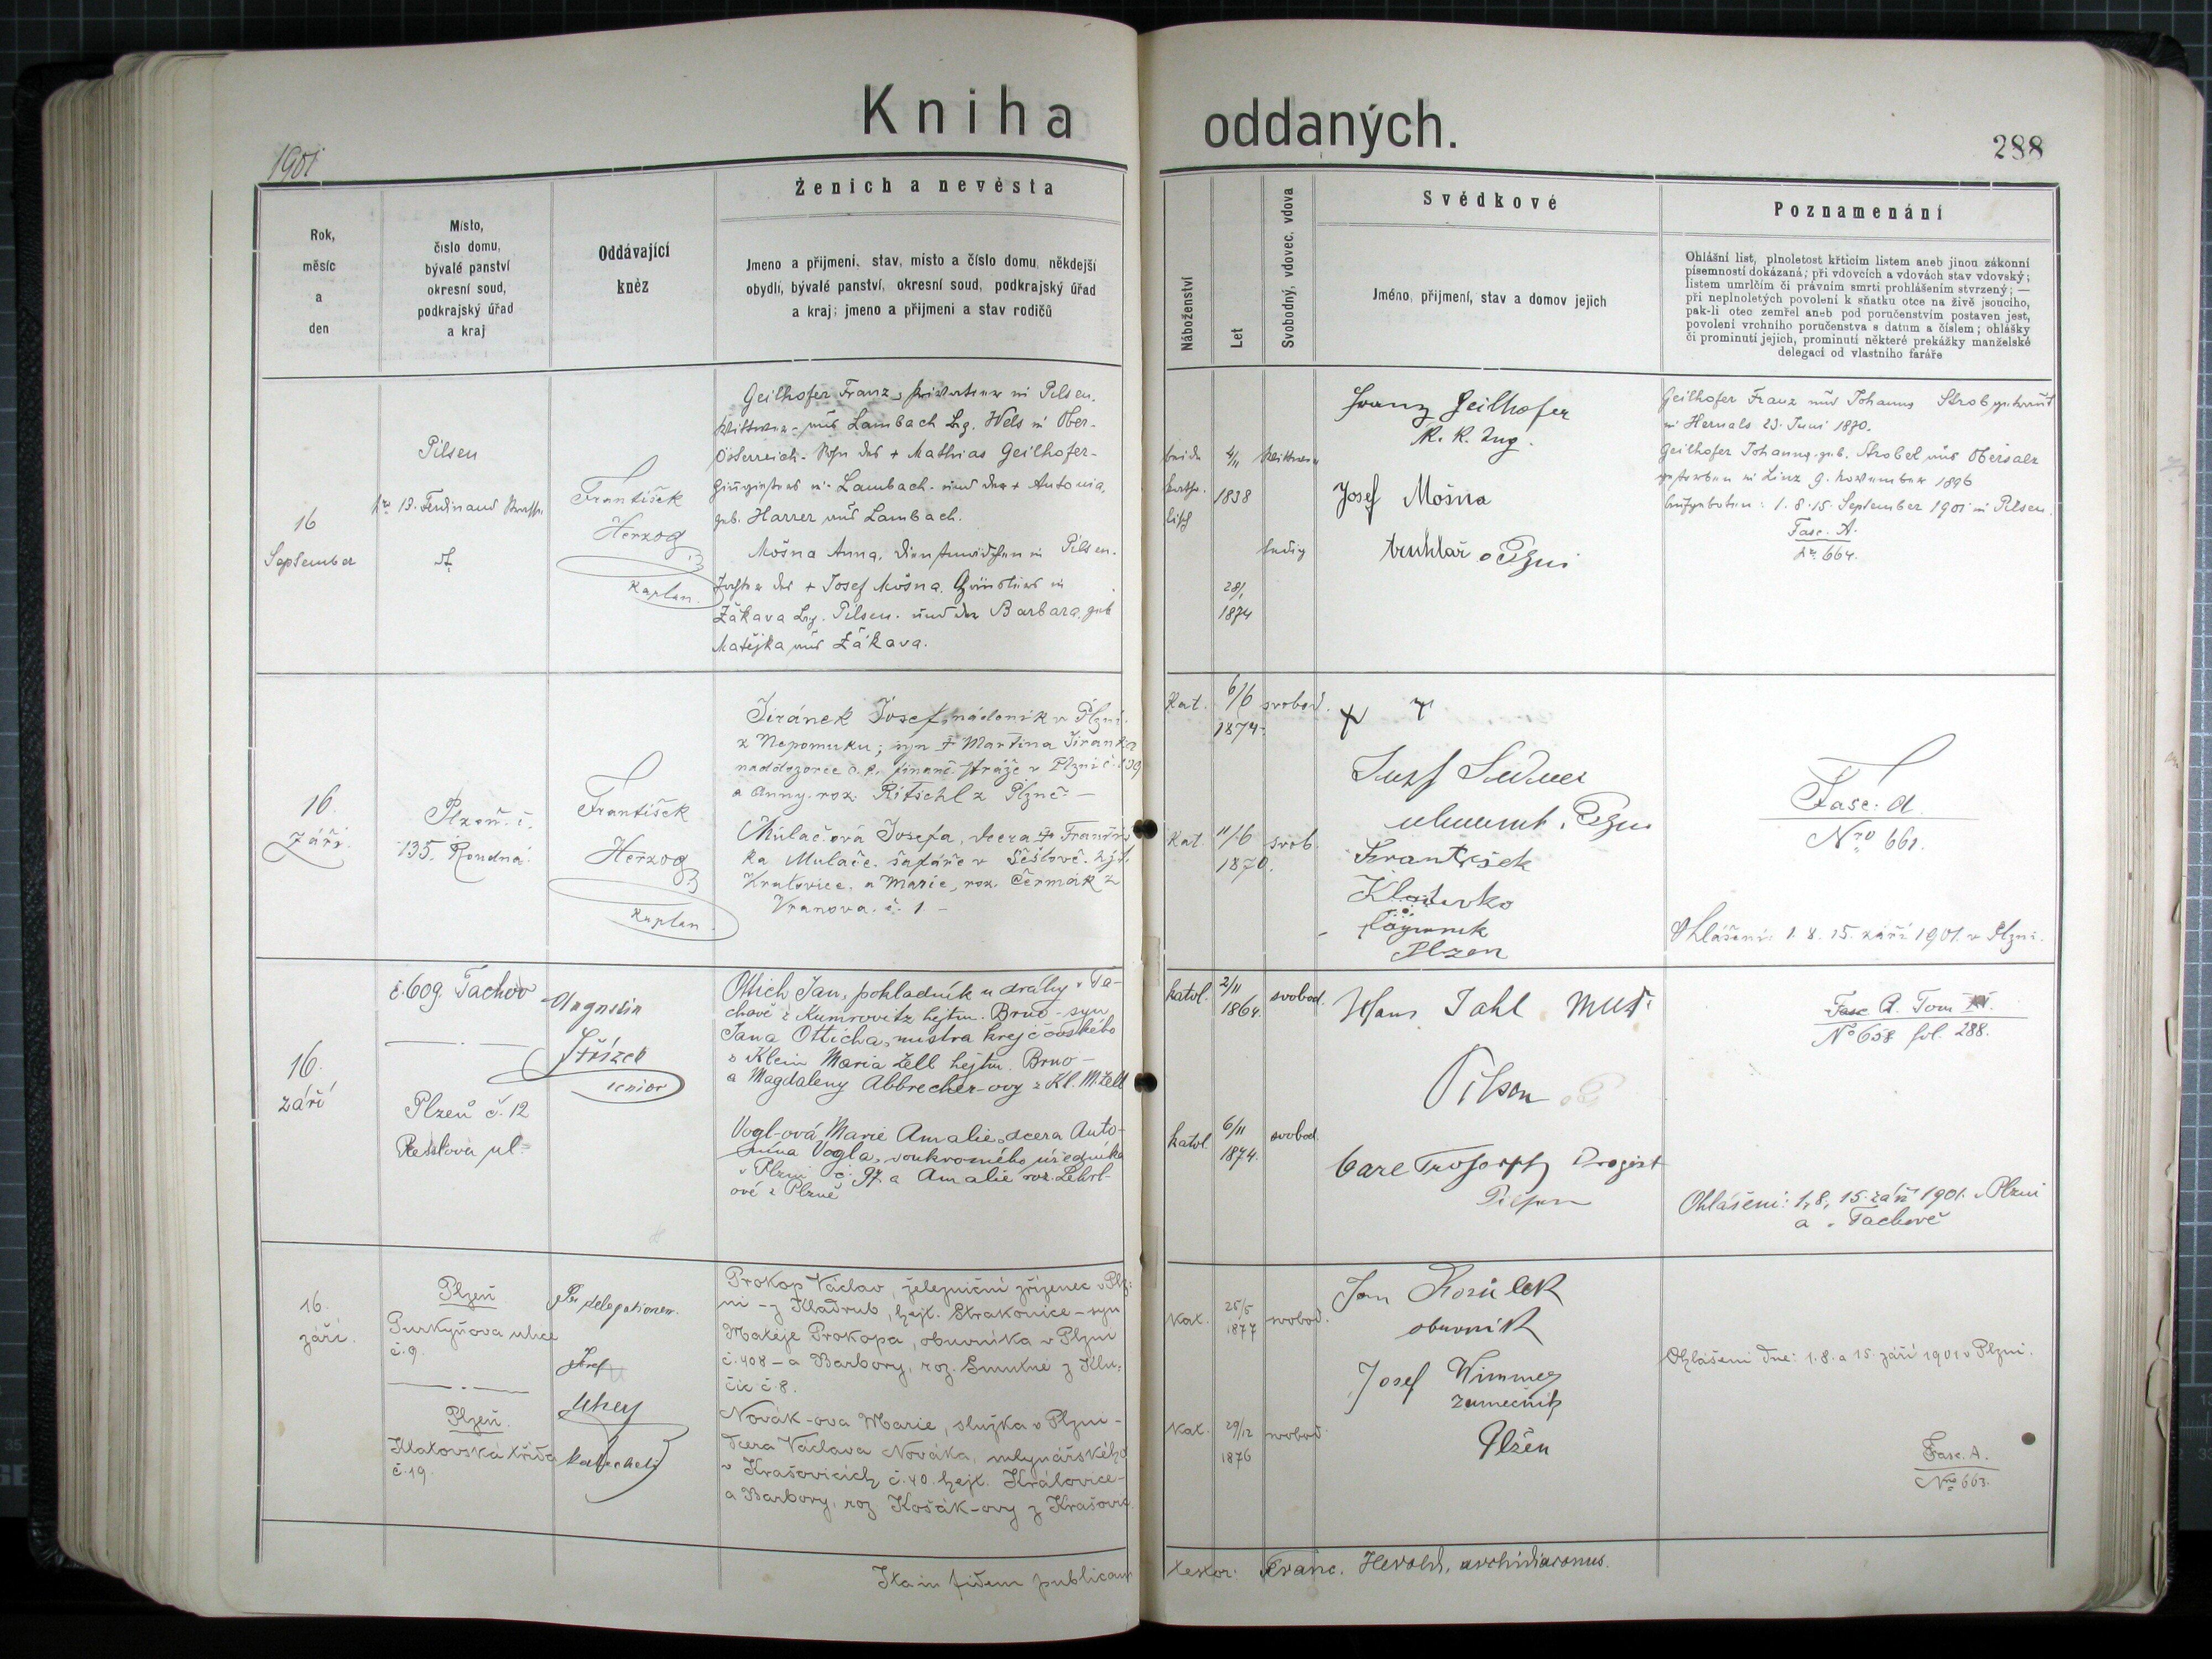 Kniha oddaných.
1901
288
Rok,
měsíc
a
den
Místo,
číslo domu,
bývalé panství
okresní soud,
podkrajský úřad
a kraj
Oddávající
kněz
Ženich a nevěsta
Jmeno a přijmení, stav, místo a číslo domu, někdejší
obydlí, bývalé panství, okresní soud, podkrajský úřad
a kraj; jmeno a přijmení a stav rodičů
Náboženství
Let
Svobodný, vdovec, vdova
Svědkové
Jméno, přijmení, stav a domov jejich
Poznamenání
Ohlášní list, plnoletost křticím listem aneb jinou zákonní
písemností dokázaná; při vdovcích a vdovách stav vdovský;
listem umrlčím či právním smrti prohlášením stvrzený; —
při neplnoletých povolení k sňatku otce na živě jsoucího,
pak-li otec zemřel aneb pod poručenstvím postaven jest,
povolení vrchního poručenstva s datum a číslem; ohlášky
či prominutí jejich, prominutí některé prekážky manželské
delegací od vlastního faráře
16
September
Pilsen
Nr 13. Ferdinand Strasse
František
Herzog
Kaplan.
Geilhofer Franz, Privatier in Pilsen.
Wittwer - aus Lambach Bzg. Wels in Ober-
österreich. Sohn des + Mathias Geilhofer-
in Lambach. und der + Antonia,
geb. Harrer aus Lambach.
Mošna Anna, in Pilsen.
Tochter des + Josef Mošna, Häuslers in
Žákava Bzg. Pilsen. und der Barbara, geb
Matějka aus Žákava.
beide
katho-
lisch
4/11
1838
Wittwer
ledig
28/1
1874
Franz Geilhofer
K. K. Ing.
Josef Mošna
truhlář v Plzni
Geilhofer Franz und Johanna Strobl getraut
in Hernals 23. Juni 1870.
Geilhofer Johanna, geb. Strobel aus Obersalz
gestorben in Linz 9. November 1896
Aufgeboten: 1. 8. 15. September 1901 in Pilsen.
Fasc. A.
Nr. 664.
16.
září.
Plzeň. č.
135. Roudná.
František
Herzog
Kaplan
Jiránek Josef, nádeník v Plzni.
z Nepomuku; syn + Martina Jiránka
naddozorce c. k. finanč. stráže v Plzni č. 139
a Anny. roz. Ritschl z Plzně. —
Mulačová Josefa, dcera + Františ
ka Mulače. šafáře v Sešlově. hjt.
Kralovice, a Marie, roz. Čermák z
Vranova. č. 1 —
Kat. 6/6 svobod.
1874.
Kat. 11/6 svob.
1870.
František
Plzen
Fasc. A.
Nro 661.
Ohlášení: 1. 8. 15. září 1901. v Plzni.
16.
září
č. 609. Tachov
Plzeň č. 12
Resslova ul.
Augustin
Střízek
senior
Ottich Jan, pokladník u dráhy v Ta-
chově z Kumrovitz hejtm. Brno - syn
Jana Otticha, mistra krejčovského
z Klein Maria Zell hejtm. Brno —
a Magdaleny Abbrecher-ovy z Kl. M. Zell
Vogl-ová Marie Amalie, dcera Anto-
nína Vogla, soukromého úředníka
v Plzni č. 97. a Amalie roz. Lehrl-
ové z Plzně
katol. 2/11 svobod.
1864.
katol. 6/11 svobod.
1874.
Hans Jahl
Pilsen
Carl Drogist
Pilsen
Fasc A. Tom XI.
No 658 fol. 288.
Ohlášení: 1, 8, 15. září 1901. v Plzni
a v Tachově
16.
září.
Plzeň
Purkyňova ulice
č. 9.
Plzeň.
Klatovská třída
č. 19.
Per delegationem.
Josef
Uhey
katecheta
Prokop Václav, železniční zřízenec v Plz-
ni - z Kladrub, hejt. Strakonice - syn
Matěje Prokopa, obuvníka v Plzni
č. 408 - a Barbory, roz. Smutné z Klu-
čic č. 8.
Novák-ova Marie, služka v Plzni -
dcera Václava Nováka, mlynářského
v Krašovicích č. 40. hejt. Královice -
a Barbory, roz. Košák-ovy z Krašovic.
Kat. 25/5 svobod.
1877
Kat. 29/12 svobod.
1876
Jan
obuvník
Josef Wimmer
zámečník
Plzen
Ohlášeni dne: 1. 8. a 15. září 1901 v Plzni.
Fasc. A.
Nro 663.
Ita in fidem publicam testor: Franc. Herold, archidiaconus.